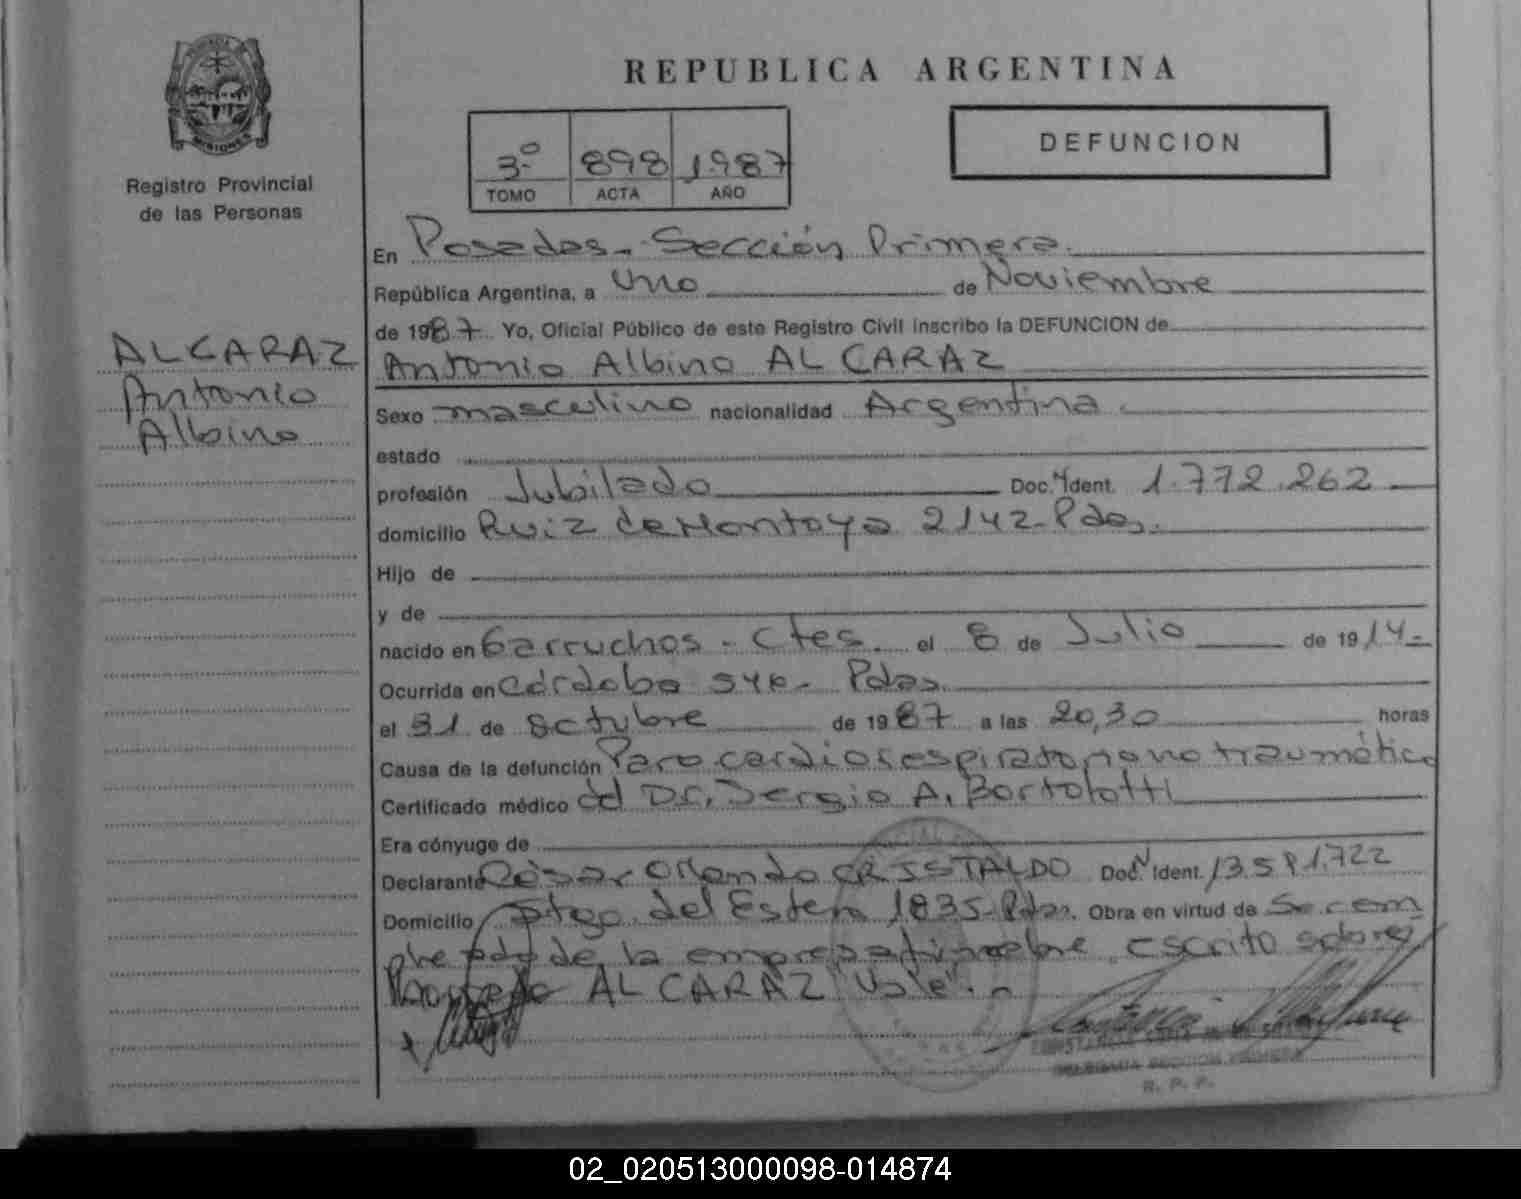 REPUBLICA ARGENTINA
PROVINCIA DE
MISIONES
Registro Provincial
de las Personas
3º 898 1987
TOMO ACTA AÑO
DEFUNCION
En Posadas - Sección Primera.
República Argentina, a uno de Noviembre
de 1987 Yo, Oficial Público de este Registro Civil inscribo la DEFUNCION de
ALCARAZ
Antonio
Albino
Antonio Albino ALCARAZ
Sexo masculino nacionalidad Argentina
estado
profesión Jubilado Doc. N Ident. 1.772.262
domicilio Ruiz de Montoya 2142 - Pdas.
Hijo de
y de
nacido en Garruchos - Ctes. el 8 de Julio de 1914-
Ocurrida en Córdoba Pdas.
el 31 de octubre de 1987 a las 20,30 horas
Causa de la defunción Paro cardiorespiratorio no traumático
Certificado médico del Dr. Sergio A. Bortolotti
Era cónyuge de
Declarante César Orlando CRISTALDO Doc. N Ident. 13.591.722
Domicilio Stgo. del Estero 1835 - Pdas. Obra en virtud de Ser em
pleado de la empresa fúnebre, escrito sobre
ALCARAZ "Vale".
DELEGADA SECCION PRIMERA
R. P. P.
02_020513000098-014874